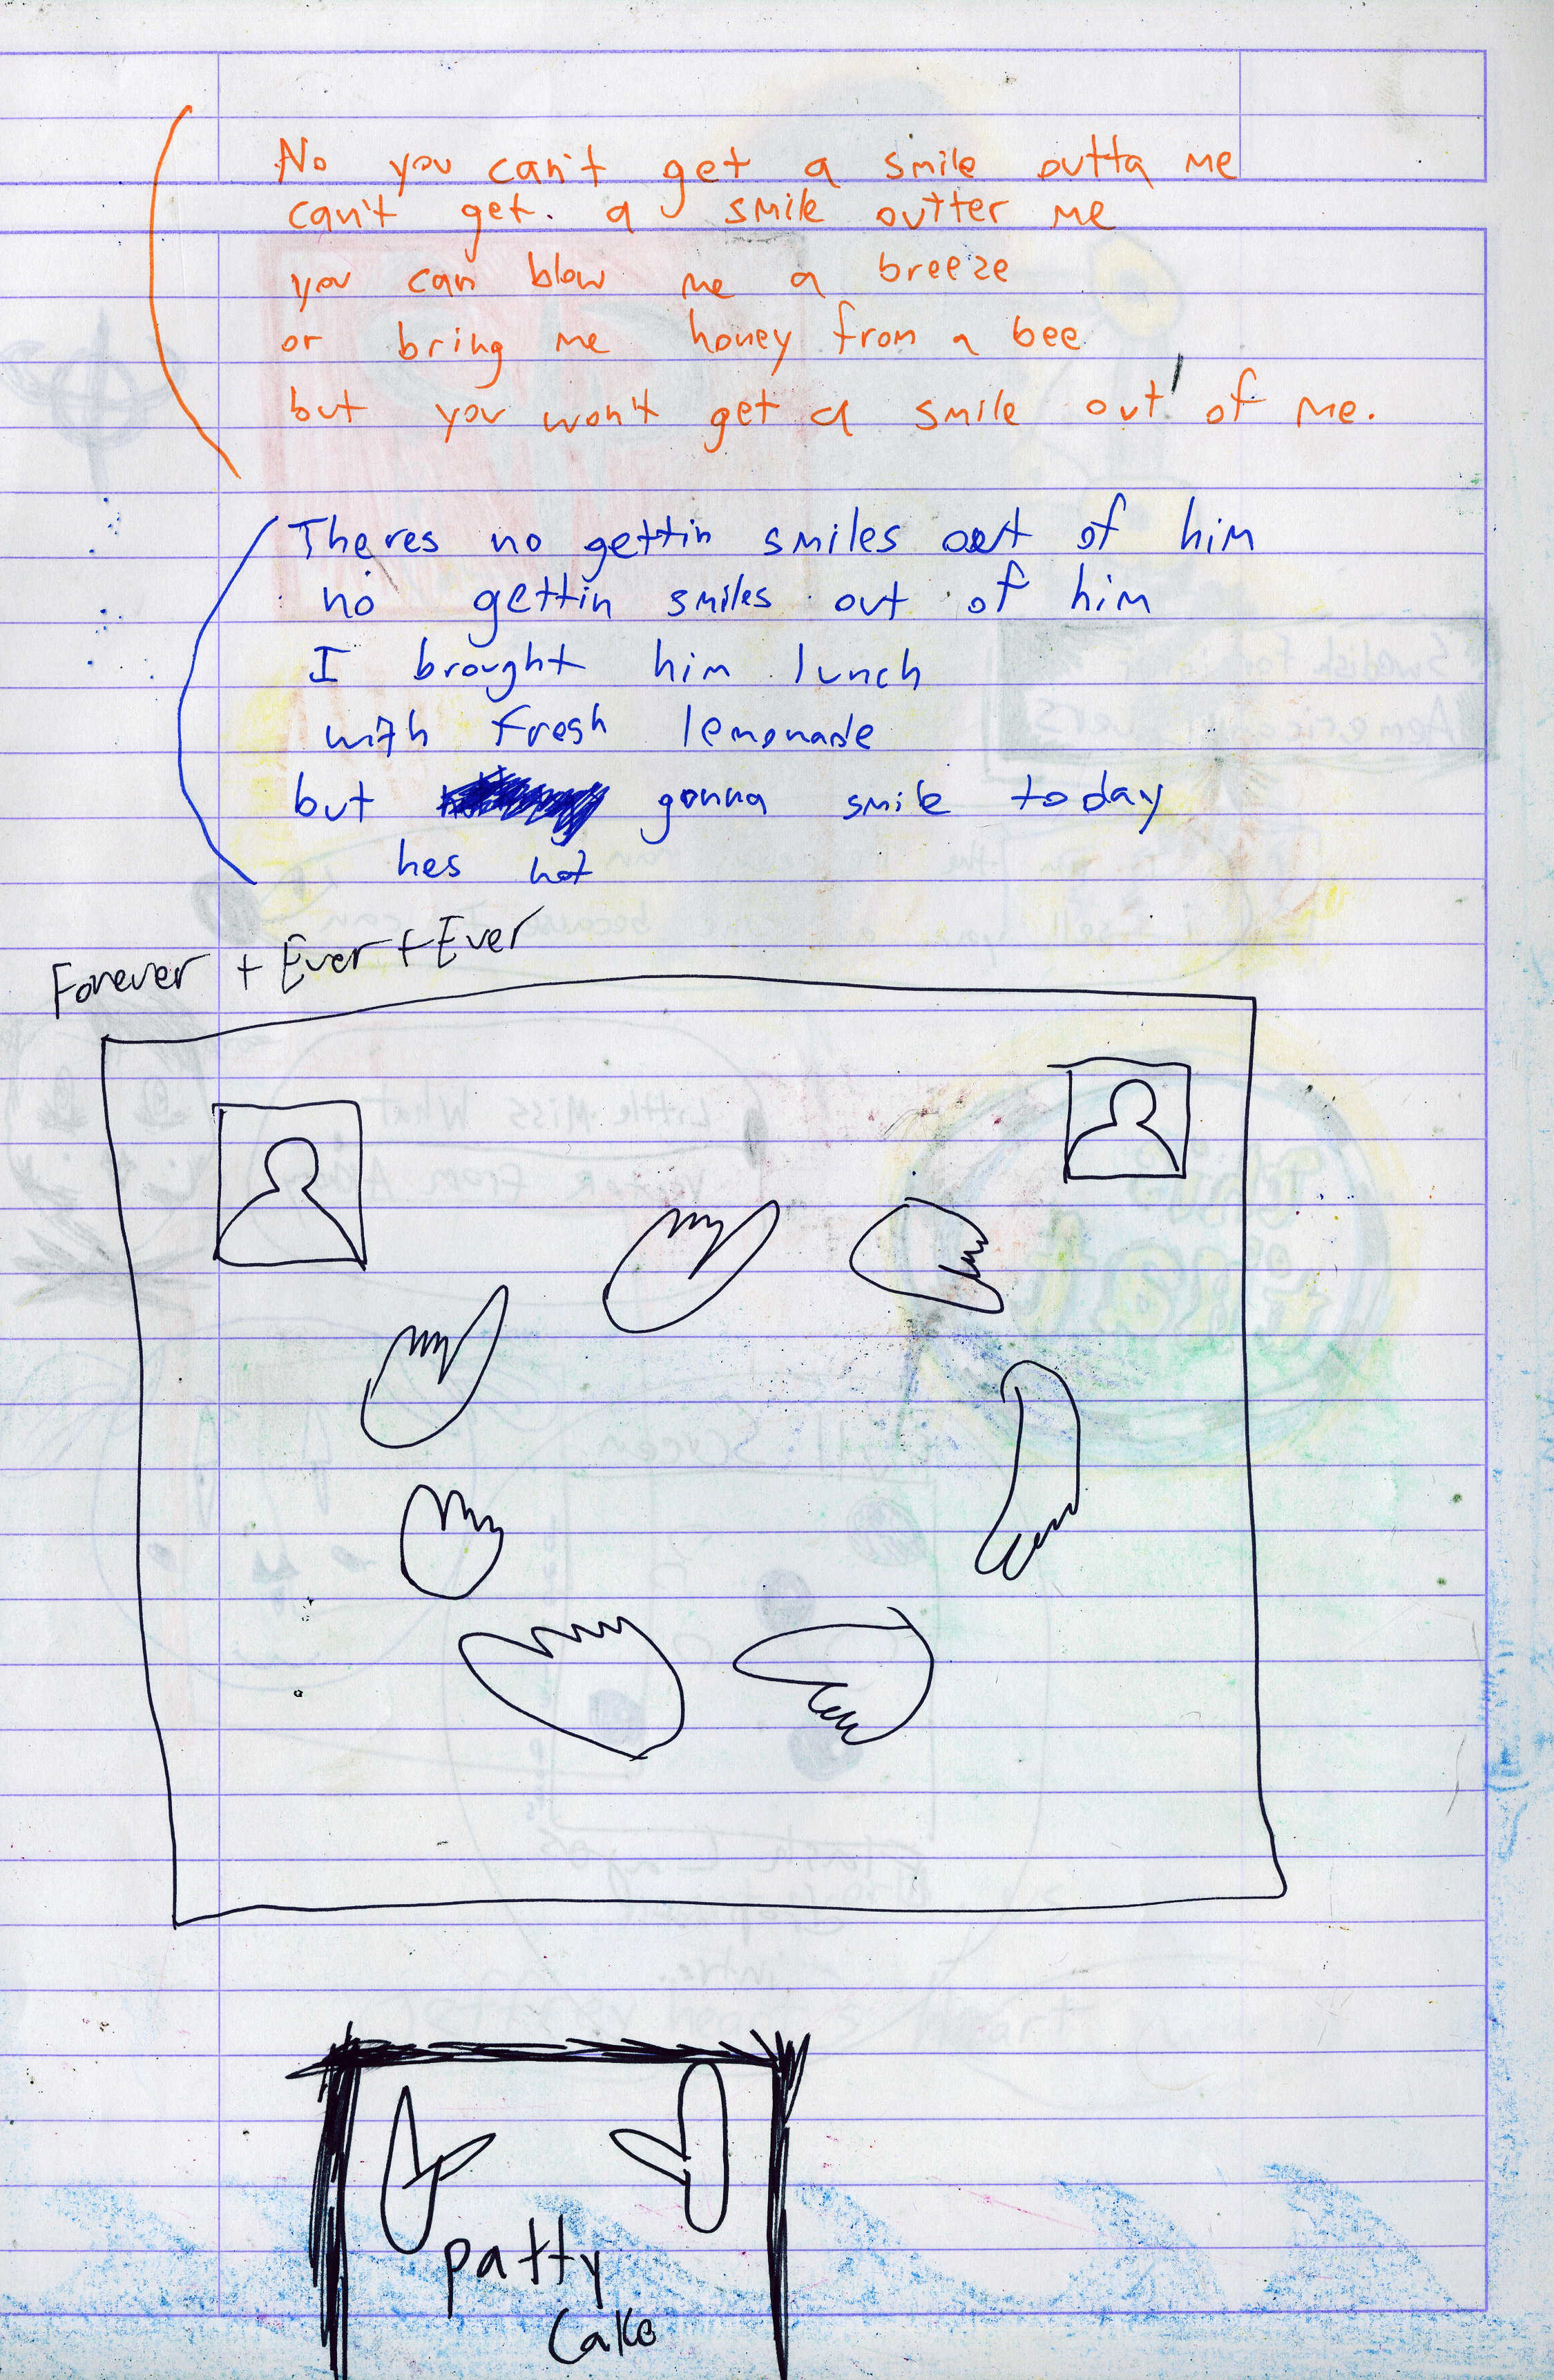 No you can't get a smile outta me
can't get a smile outter me
you can blow me a breeze
or bring me honey from a bee
but you won't get a smile out of me.
Theres no gettin smiles out of him
no gettin smiles out of him
I brought him lunch
with fresh lemonade
but gonna smile today
hes not
Forever + Ever + Ever
patty
cake